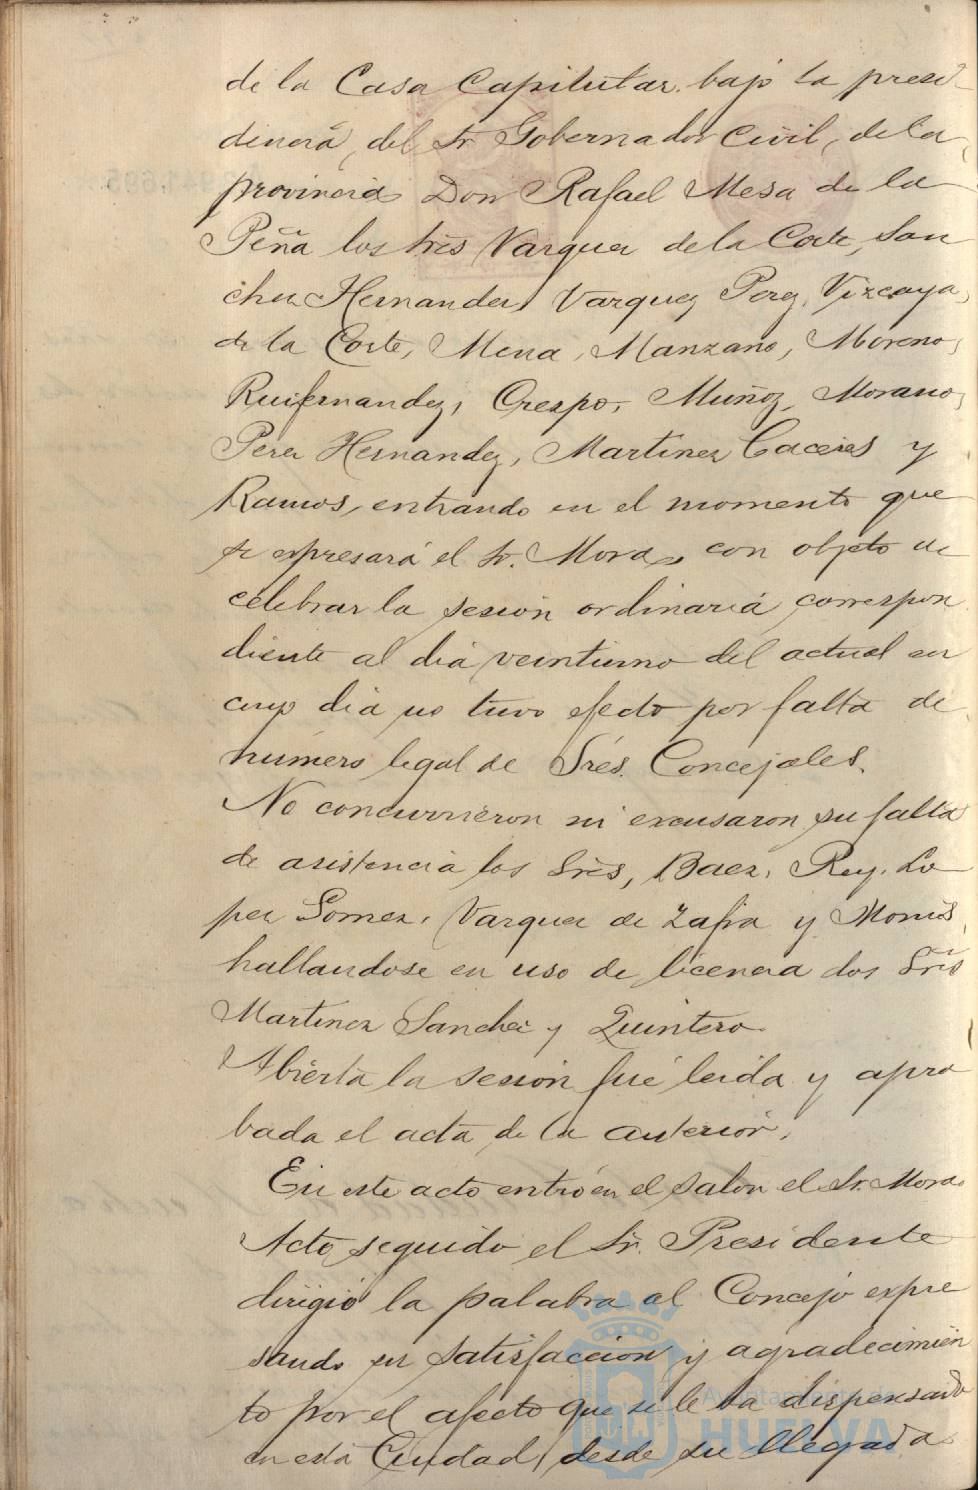 de la Casa Capitular bajo la presi-
dencia, del Sr. Gobernador Civil, de la
provincia Don Rafael Mesa de la
Peña los Srés Vazquez de la Corte, San
chez Hernandez, Vazquez Perez, Vizcaya,
de la Corte, Mena, Manzano, Moreno,
Ruifernandez, Crespo, Muñoz, Morano,
Perez Hernandez, Martinez Caceres y
Ramos, entrando en el momento que
se espresará el Sr. Mora, con objeto de
celebrar la sesión ordinaria correspon
diente al dia veintiuno del actual en
cuyo dia no tuvo efecto por falta de
número legal de Srés. Concejales.
No concurrieron ni excusaron su falta
de asistencia los Srés, Baez, Rey, Lo
pez Gomez, Vazquez de Zafra y
hallandose en uso de licencia los Srés
Martinez Sanchez y Quintero.
Abierta la sesión fué leida y apro
bada el acta de la anterior.
En este acto entró en el salon el Sr. Mora
Acto seguido el Sr. Presidente
dirigió la palabra al Concejo expre
sando su satisfaccion y agradecimien
to por el afecto que se le ha dispensado
en esta Ciudad, desde su llegada
Ayuntamiento de
HUELVA